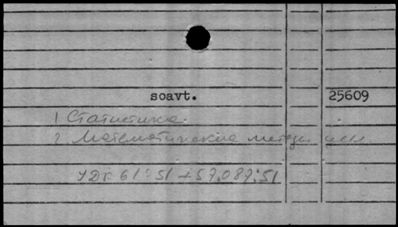 soavt. 25609
1 Статистика.
2 Математические методы исл
УДК 61:51+57.087:51